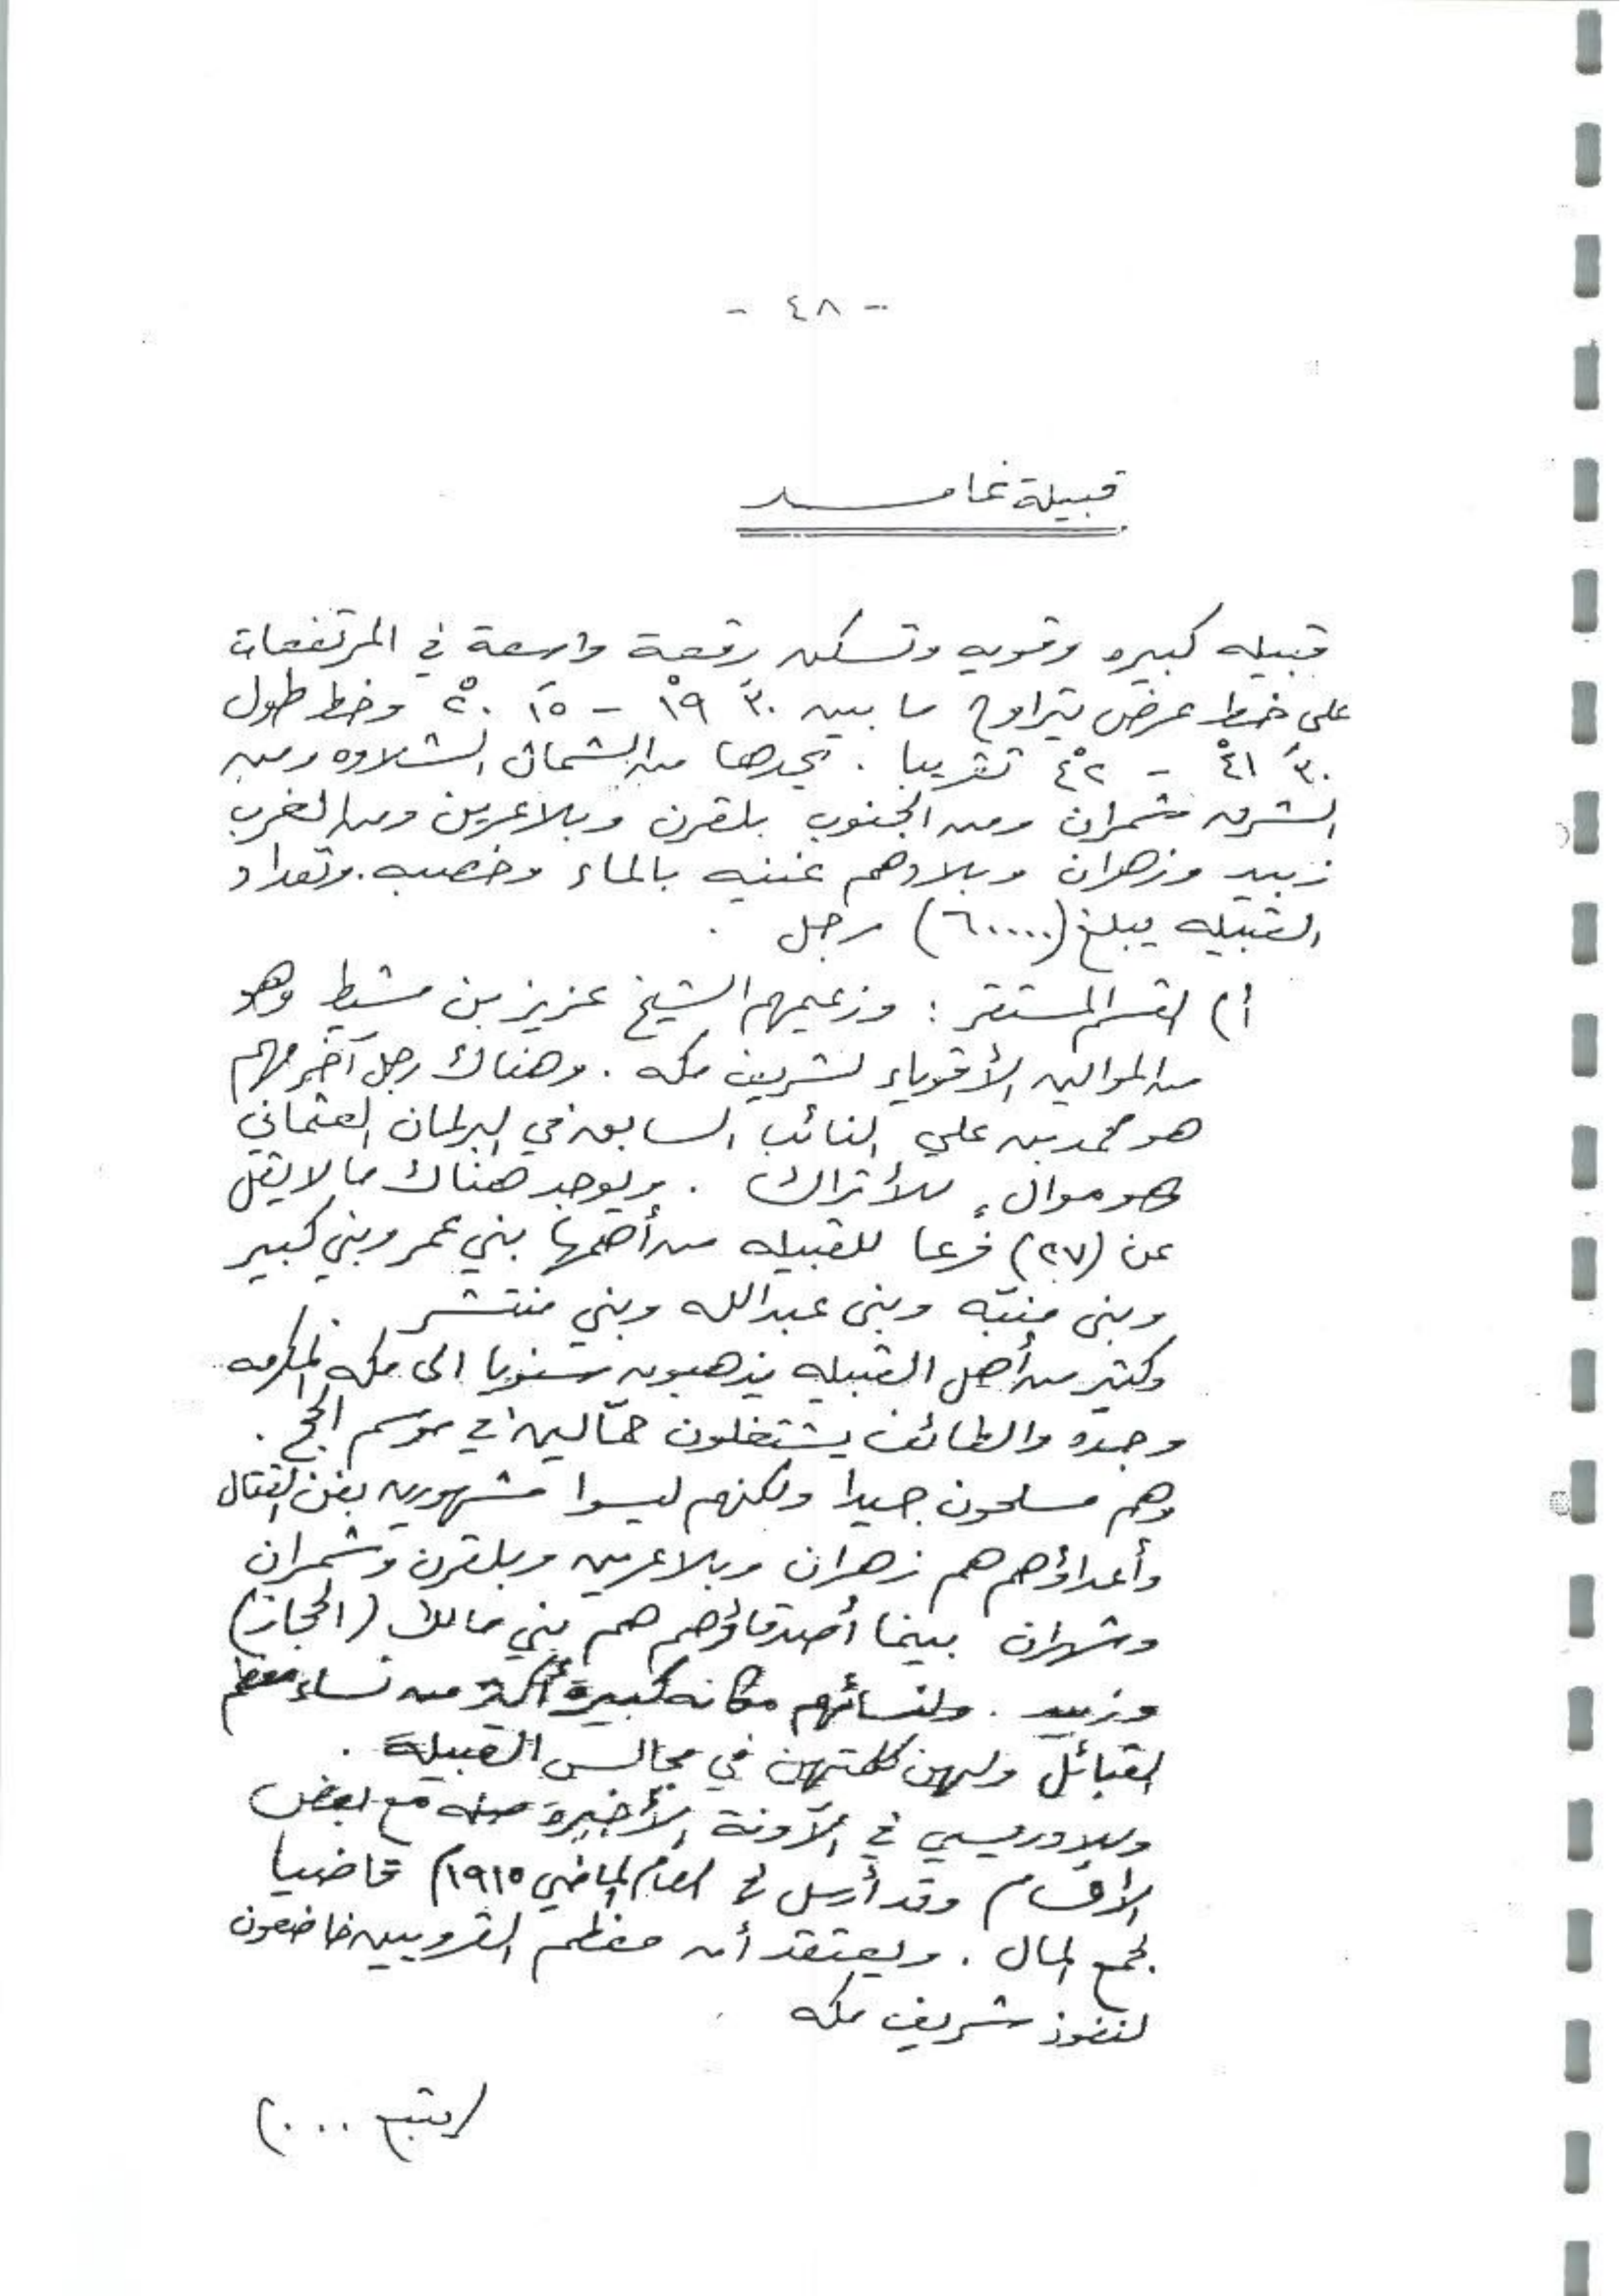 - ٤٨ -
قبيلة غامد
قبيله كبيره وقويه وتسكن رقعة واسعة في المرتفعات
على خط عرض يتراوح ما بين ٣٠َ ١٩ْ - ١٥َ ٢٠ْ وخط طول
٣٠َ ٤١ْ - ٤٢ْ تقريبا . يحدها من الشمال الشلاوه ومن
الشرق شمران ومن الجنوب بلقرن وبلاعرين ومن الغرب
زبيد وزهران وبلادهم غنيه بالماء وخصبه. وتعداد
القبيله يبلغ (٦٠٠٠٠) رجل .
أ) القسم المستقر : وزعيمهم الشيخ عزيز بن مشيط وهو
من الموالين الأقوياء لشريف مكه . وهناك رجل آخر مهم
هو محمد بن علي النائب السابق في البرلمان العثماني
وهو موالٍ للأتراك . ويوجد هناك ما لا يقل
عن (٢٧) فرعا للقبيله من أهمها بني عمر وبني كبير
وبني منبّه وبني عبدالله وبني منتشر .
وكثير من أهل القبيله يذهبون سنويا الى مكه المكرمه
وجده والطائف يشتغلون حمّالين في موسم الحج .
وهم مسلحون جيدا ولكنهم ليسوا مشهورين بفن القتال
وأعداؤهم هم زهران وبلاعرين وبلقرن وشمران
وشهران بينما أصدقاؤهم هم بني مالك (الحجاز)
وزبيد . ولنسائهم مكانه كبيرة أكثر من نساء معظم
القبائل ولهن كلمتهن في مجالس القبيلة .
وللإدريسي في الآونة الأخيرة صله مع بعض
الأقسام وقد أرسل في العام الماضي ١٩١٥م قاضيا
لجمع المال . ويعتقد أن معظم القرويين خاضعون
لنفوذ شريف مكه .
(يتبع ....)